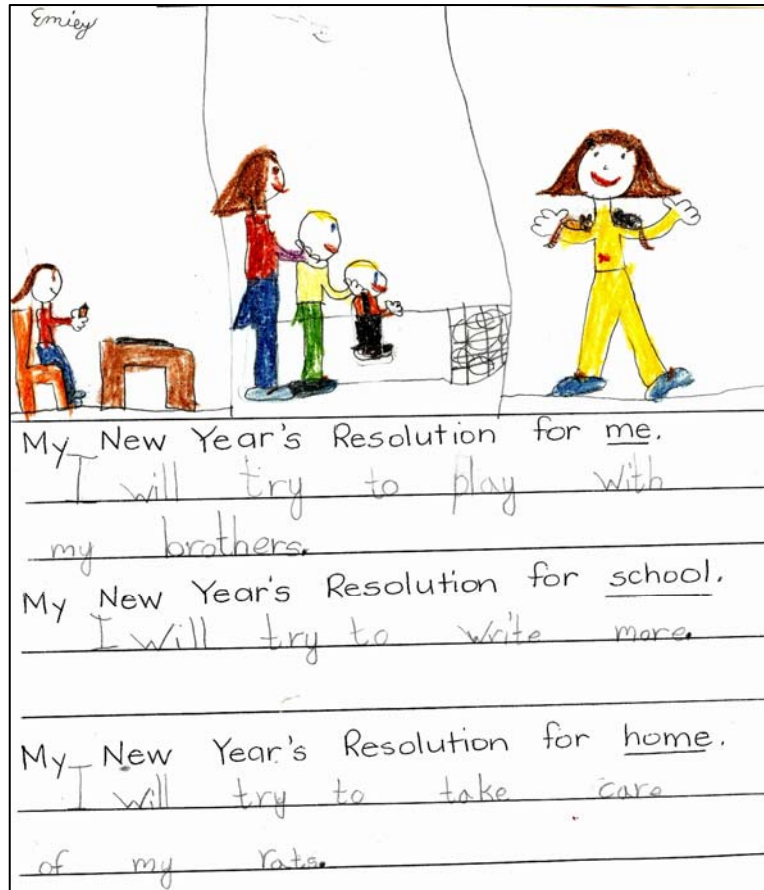 Emiey
My New Year's Resolution for me.
I will try to play with
my brothers.
My New Year's Resolution for school.
I will try to write more.
My New Year's Resolution for home.
I will try to take care
of my rats.